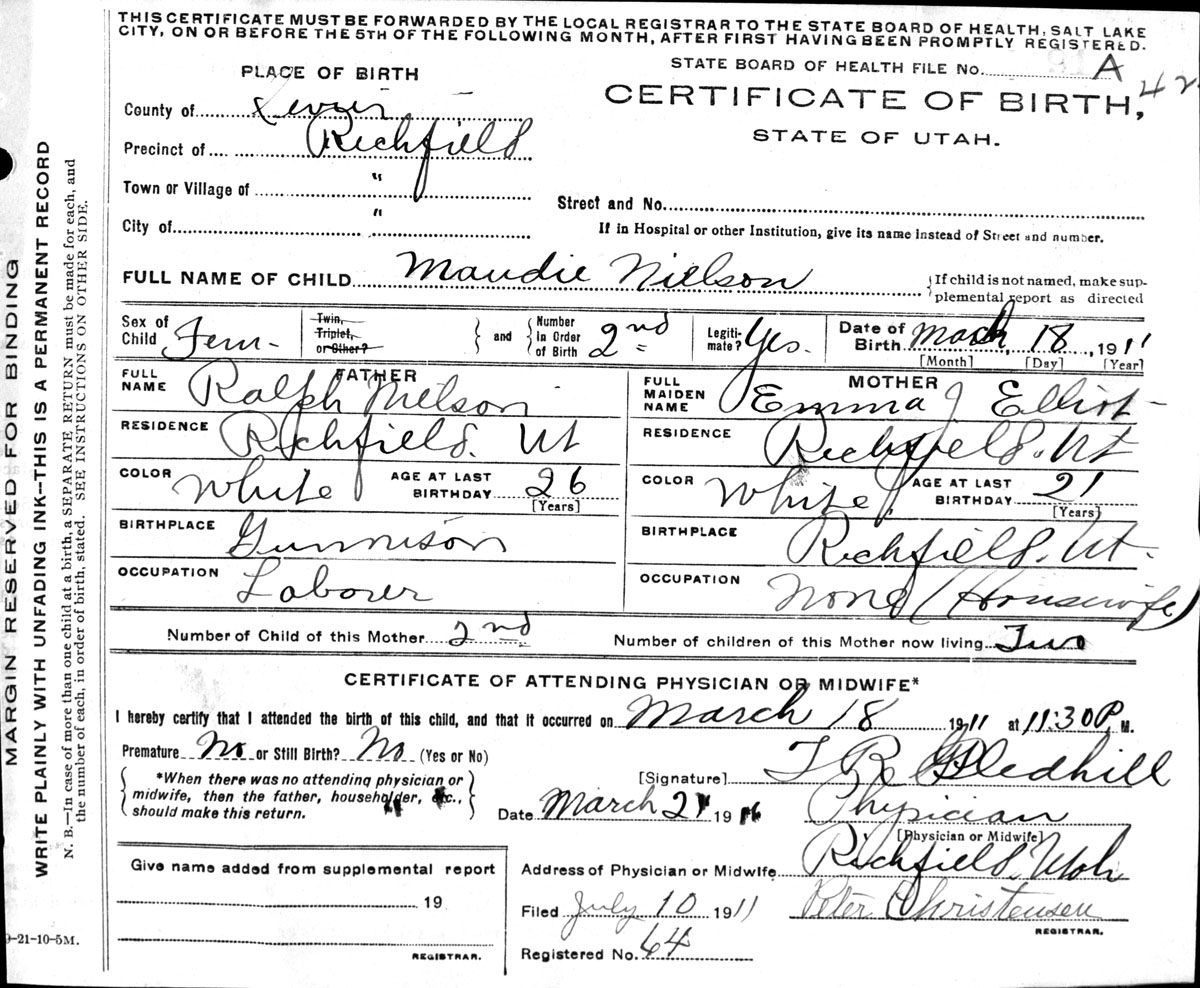 THIS CERTIFICATE MUST BE FORWARDED BY THE LOCAL REGISTRAR TO THE STATE BOARD OF HEALTH, SALT LAKE
CITY, ON OR BEFORE THE 5TH OF THE FOLLOWING MONTH, AFTER FIRST HAVING BEEN PROMPTLY REGISTERED.
STATE BOARD OF HEALTH FILE No. A 42
PLACE OF BIRTH
CERTIFICATE OF BIRTH,
STATE OF UTAH.
County of Sevier
Precinct of Richfield
Town or Village of "
Street and No.
City of "
If in Hospital or other Institution, give its name instead of Street and number.
FULL NAME OF CHILD Maudie Nielson
If child is not named, make sup-
plemental report as directed
Sex of Child Fem. Twin, Triplet, or Other? and Number in Order of Birth 2nd Legiti- mate? Yes. Date of Birth March 18, 1911
[Month] [Day] [Year]
FATHER MOTHER
FULL NAME Ralph Nielson FULL MAIDEN NAME Emma J Elliot
RESIDENCE Richfield. Ut RESIDENCE Richfield. Ut
COLOR White AGE AT LAST BIRTHDAY 26 [Years] COLOR White AGE AT LAST BIRTHDAY 21 [Years]
BIRTHPLACE Gunnison BIRTHPLACE Richfield. Ut.
OCCUPATION Laborer OCCUPATION None (Housewife)
Number of Child of this Mother 2nd Number of children of this Mother now living Two
CERTIFICATE OF ATTENDING PHYSICIAN OR MIDWIFE*
I hereby certify that I attended the birth of this child, and that it occurred on March 18 1911 at 11:30 P. M.
Premature No or Still Birth? No (Yes or No)
*When there was no attending physician or
midwife, then the father, householder, etc.,
should make this return.
[Signature] T R Gledhill
Date March 21 19
Physician
[Physician or Midwife]
Give name added from supplemental report
19
REGISTRAR.
Address of Physician or Midwife Richfield, Utah
Filed July 10 1911 Peter Christensen
REGISTRAR.
Registered No. 64
MARGIN RESERVED FOR BINDING
WRITE PLAINLY WITH UNFADING INK--THIS IS A PERMANENT RECORD
N. B.—In case of more than one child at a birth, a SEPARATE RETURN must be made for each, and
the number of each, in order of birth, stated. SEE INSTRUCTIONS ON OTHER SIDE.
9-21-10-5M.